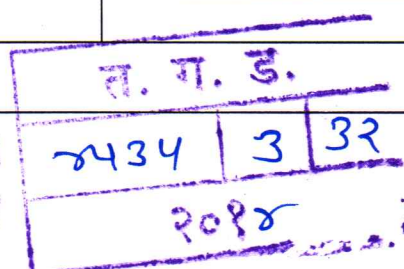 त. ग. ड.
४५३५ ३ ३२
२०१४